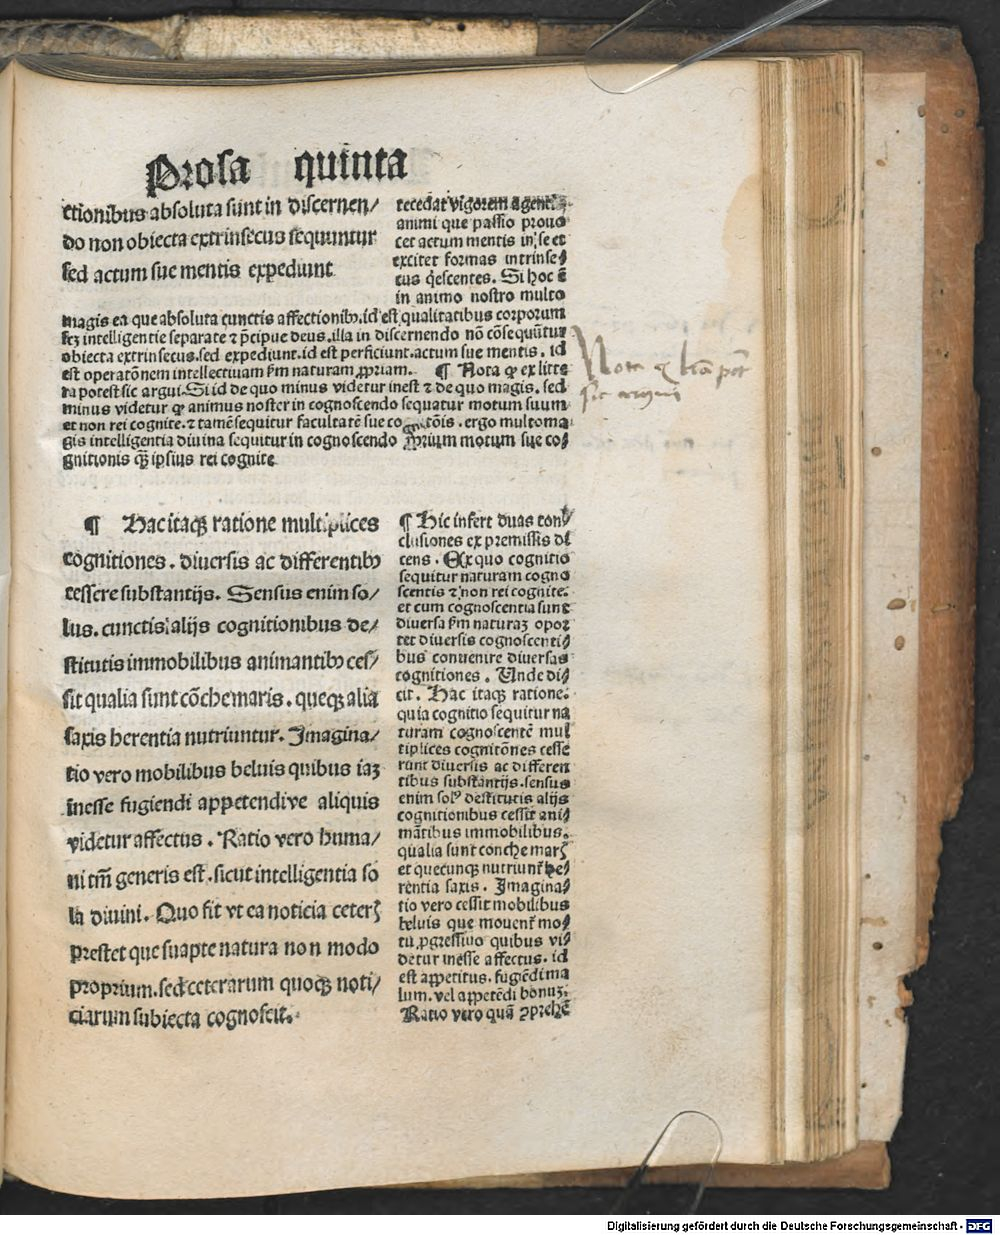 Prosa quinta
ctionibus absoluta sunt in discernen/
do non obiecta extrinsecus sequuntur
sed actum sue mentis expediunt
tecedat vigorem agentis
animi que passio prouo
cet actum mentis in se et
excitet formas intrinse/
cus q̄escentes. Si hoc ē
in animo nostro multo
magis ea que absoluta cunctis affectionibꝫ.id est qualitatibus corporum
scꝫ intelligentie separate ⁊ p̄cipue deus.illa in discernendo nō cōsequūtur
obiecta extrinsecus.sed expediunt.id est perficiunt.actum sue mentis. id
est operatōnem intellectiuam ẜm naturam ꝓpriam. ¶ Nota ꝙ ex litte
ra potest sic argui.Si id de quo minus videtur inest ⁊ de quo magis. sed
minus videtur ꝙ animus noster in cognoscendo sequatur motum suum
et non rei cognite.⁊ tamē sequitur facultatē sue cognitōis. ergo multo ma
gis intelligentia diuina sequitur in cognoscendo ꝓprium motum sue co/
gnitionis qꝫ̄ ipsius rei cognite
Nota ꝙ l̄ram pōt
sic argui
¶ Hac itaqꝫ ratione multiplices
cognitiones. diuersis ac differentibꝫ
cessere substantijs. Sensus enim so/
lus. cunctis alijs cognitionibus de/
stitutis immobilibus animantibꝫ ces/
sit qualia sunt cōche maris. queqꝫ alia
saxis herentia nutriuntur. Imagina/
tio vero mobilibus beluis quibus iaꝫ
inesse fugiendi appetendive aliquis
videtur affectus. Ratio vero huma/
ni tm̄ generis est.sicut intelligentia so
la diuini. Quo fit vt ea noticia ceterꝭ
prestet que suapte natura non modo
proprium.sed ceterarum quoqꝫ noti/
ciarum subiecta cognoscit.
¶ Hic infert duas con/
clusiones ex premissis di
cens. Ex quo cognitio
sequitur naturam cogno
scentis ⁊ non rei cognite.
et cum cognoscentia sunt
diuersa ẜm naturaꝫ opor
tet diuersis cognoscenti/
bus conuenire diuersas
cognitiones. Unde di/
cit. Hac itaqꝫ ratione.
quia cognitio sequitur na
turam cognoscentē mul
tiplices cognitōnes cesse
runt diuersis ac differen
tibus substantijs.sensus
enim solꝰ destitutis alijs
cognitionibus cessit ani
mātibus immobilibus.
qualia sunt conche marꝭ
et quecunqꝫ nutriunt̄ he/
rentia saxis. Imagina/
tio vero cessit mobilibus
beluis que mouent̄ mo/
tu ꝓgressiuo quibus vi/
detur inesse affectus. id
est appetitus. fugiēdi ma
lum. vel appetēdi bonuꝫ.
Ratio vero quā ꝯprehē
Digitalisierung gefördert durch die Deutsche Forschungsgemeinschaft - DFG